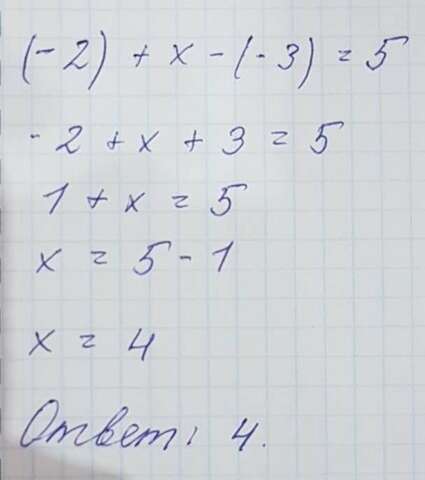 (-2) + x - (-3) = 5
-2 + x + 3 = 5
1 + x = 5
x = 5 - 1
x = 4
Ответ: 4.